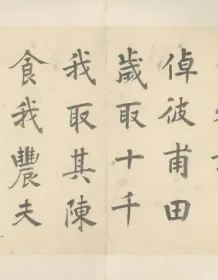 倬彼甫田
歲取十千
我取其陳
食我農夫